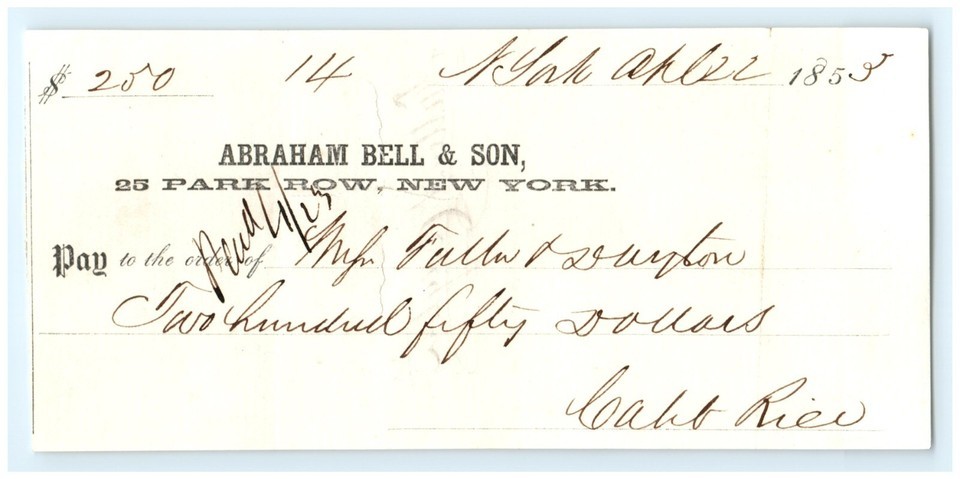 $ 250 14 N York Apl 22 1853
ABRAHAM BELL & SON,
25 PARK ROW, NEW YORK.
Paid 4/23
Pay to the order of Messrs Fuller & Dayton
Two hundred fifty Dollars
Caleb Rice